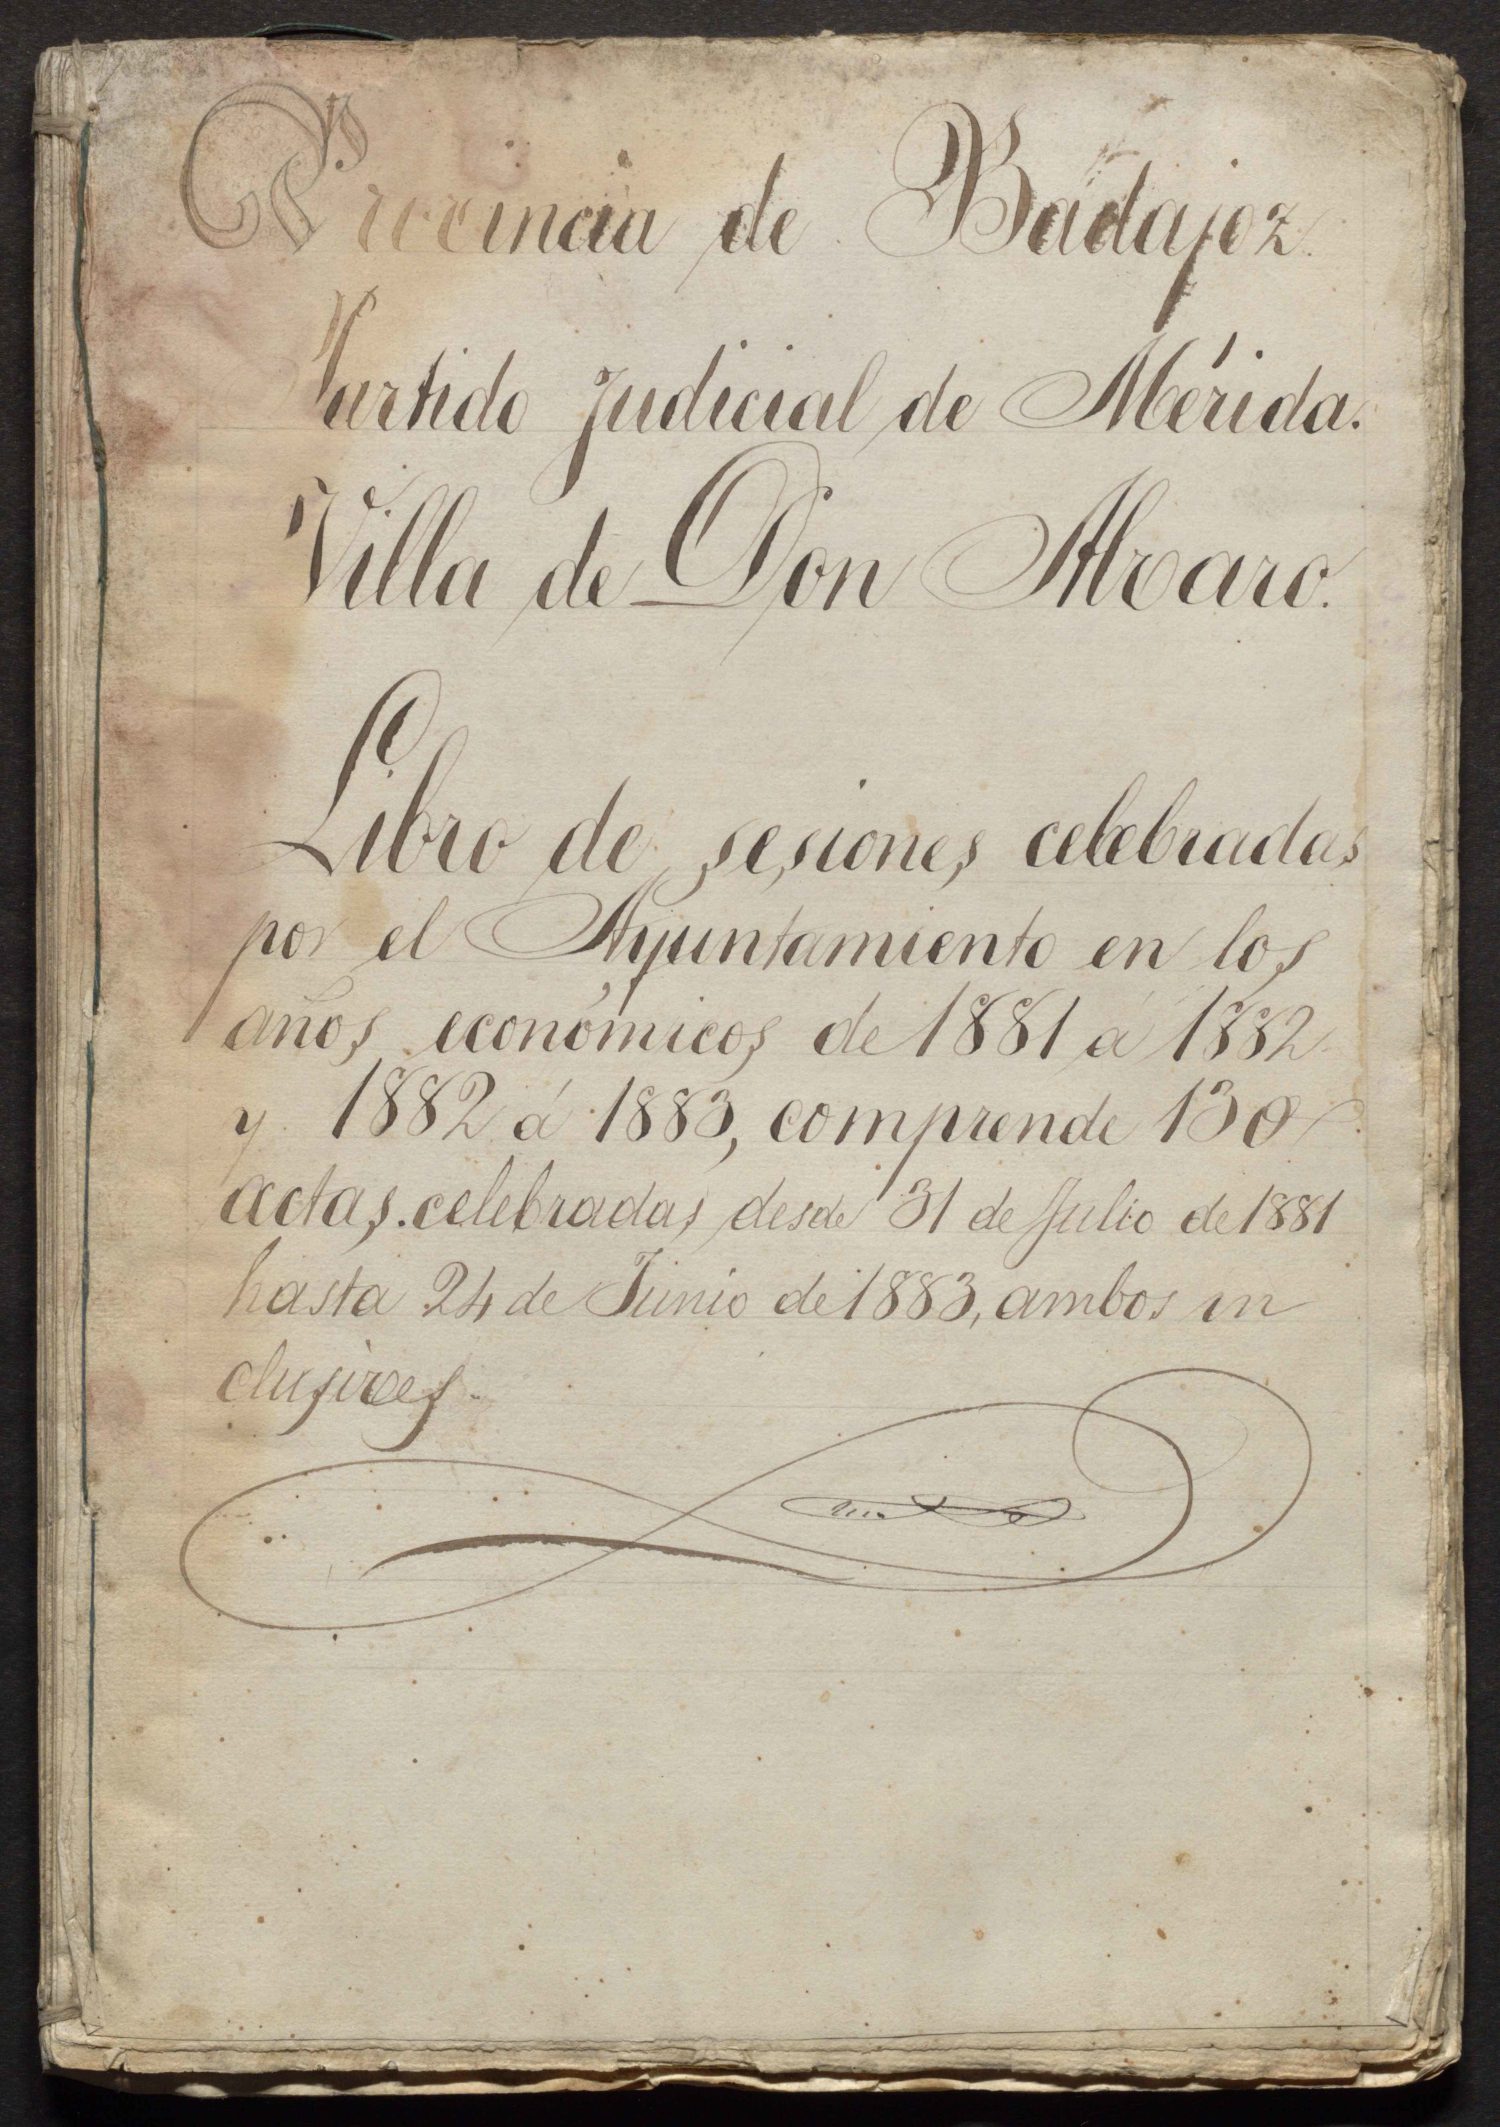 Provincia de Badajoz.
Partido judicial de Mérida.
Villa de Don Alvaro.
Libro de sesiones celebradas
por el Ayuntamiento en los
años económicos de 1881 á 1882
y 1882 á 1883, comprende 130
actas celebradas desde 31 de Julio de 1881
hasta 24 de Junio de 1883, ambos in
clusives.